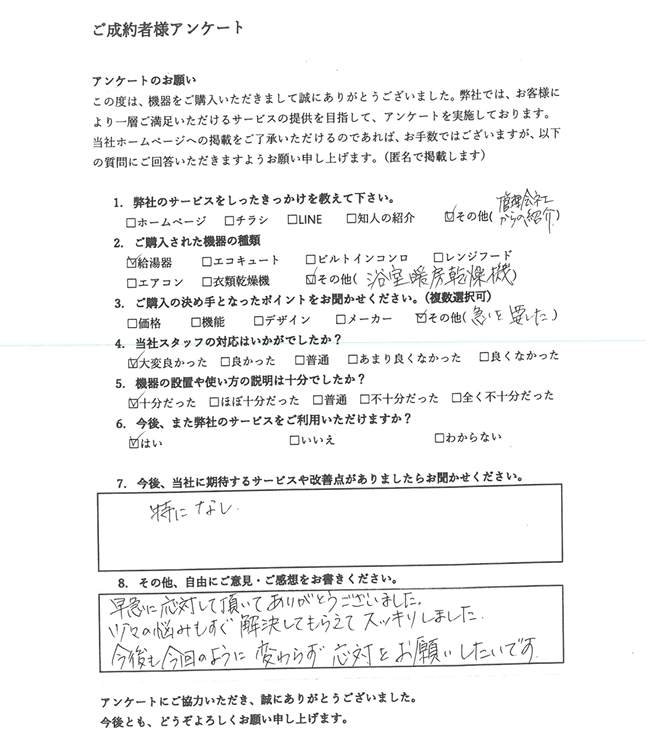 ご成約者様アンケート
アンケートのお願い
この度は、機器をご購入いただきまして誠にありがとうございました。弊社では、お客様に
より一層ご満足いただけるサービスの提供を目指して、アンケートを実施しております。
当社ホームページへの掲載をご了承いただけるのであれば、お手数ではございますが、以下
の質問にご回答いただきますようお願い申し上げます。（匿名で掲載します）
1. 弊社のサービスをしったきっかけを教えて下さい。
□ホームページ □チラシ □LINE □知人の紹介 ☑その他(管理会社からの紹介)
2. ご購入された機器の種類
☑給湯器 □エコキュート □ビルトインコンロ □レンジフード
□エアコン □衣類乾燥機 ☑その他(浴室暖房乾燥機)
3. ご購入の決め手となったポイントをお聞かせください。（複数選択可）
□価格 □機能 □デザイン □メーカー ☑その他(急いを要した)
4. 当社スタッフの対応はいかがでしたか？
☑大変良かった □良かった □普通 □あまり良くなかった □良くなかった
5. 機器の設置や使い方の説明は十分でしたか？
☑十分だった □ほぼ十分だった □普通 □不十分だった □全く不十分だった
6. 今後、また弊社のサービスをご利用いただけますか？
☑はい □いいえ □わからない
7. 今後、当社に期待するサービスや改善点がありましたらお聞かせください。
特になし.
8. その他、自由にご意見・ご感想をお書きください。
早急に応対して頂いてありがとうございました.
々の悩みもすぐ解決してもらえてスッキリしました.
今後も今回のように変わらず応対をお願いしたいです.
アンケートにご協力いただき、誠にありがとうございました。
今後とも、どうぞよろしくお願い申し上げます。